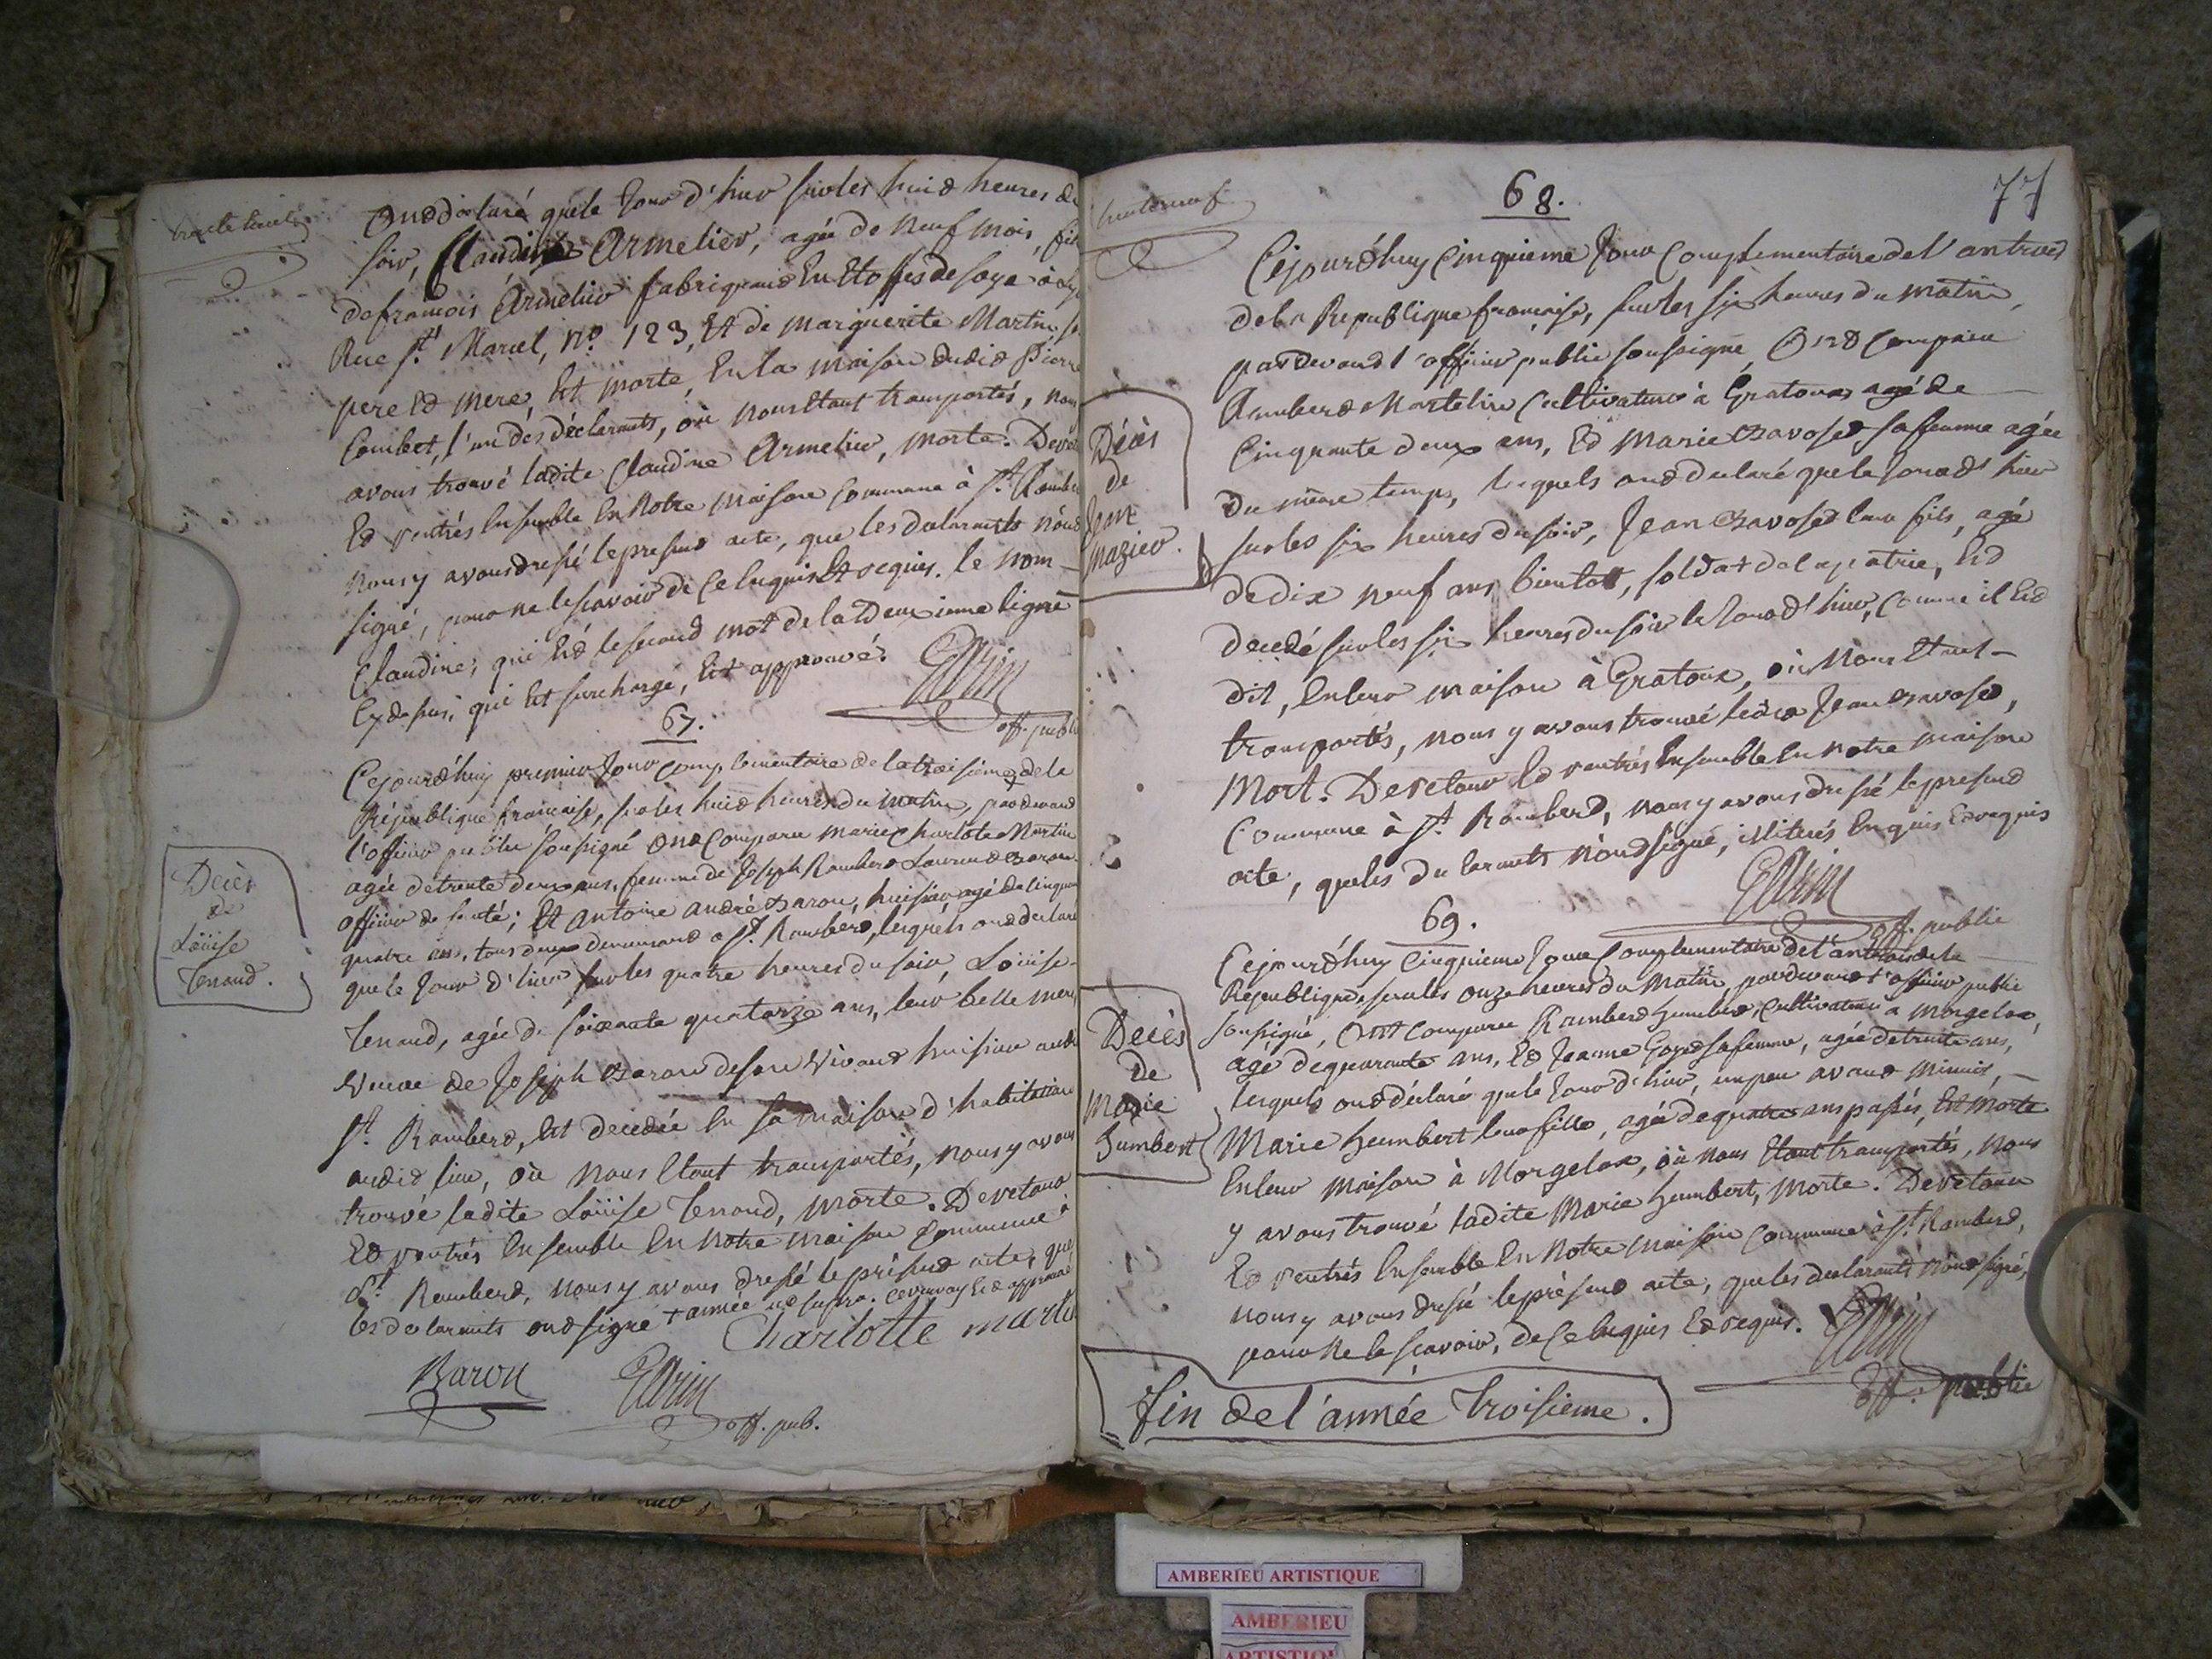 trente huit
Ont déclaré que le Jour d'hier sur les huit heures du
soir, Claudine Armelier, agée de neuf mois, fille
de françois Armelier fabriquant En Etoffes de soye à Lyon
Rue St. Marcel, No. 123, Et de Marguerite Martin, ses
pere Et mere Est morte, En la maison dudit Pierre
Combet, l'un des déclarants, où nous Etant transportés, nous
avons trouvé ladite Claudine Armelier, morte. De retour
Et rentrés Ensemble En Notre maison Commune à St. Rambert
nous y avons dressé le present acte, que les declarants n'ont
signé, pour ne le sçavoir de Ce Enquis Et requis. le nom
Claudine, qui Est le second mot de la Deuxieme ligne
Cy dessus, qui Est surchargé, Est approuvé.
off. public
67.
Décès
de
Loüise
Tenand.
Cejourd'huy premier Jour complementaire de la troisieme + de la
République française, sur les huit heures du matin, pardevant
l'officier public soussigné Ont Comparu marie Charlote Martin
agée de trente deux ans, femme de Joseph Rambert Laurent Baron
officier de santé; Et Antoine André Baron, huissier agé de cinquante
quatre ans, tous deux demeurant a St. Rambert, lesquels ont declaré
que le Jour d'hier sur les quatre heures du soir, Loüise
Tenand, agée de soixante quatorze ans, leur belle mere,
Veuve de Joseph Baron de son vivant huissier audit
St. Rambert, Est decedée En sa maison d'habitation
audit lieu, où nous Etant transportés, nous y avons
trouvé ladite Loüise Tenand, morte. De retour
Et rentrés Ensemble En Notre maison Commune à
St. Rambert, nous y avons dressé le présent acte, que
les declarants ont signé + année ut supra. Ce renvoy Est approuvé
Charlotte martin
Baron
off. pub.
77
trente neuf
68.
Décès
de
Jean
Mazier.
Cejourd'huy Cinquieme Jour Complementaire de l'an trois
de la Republique française, sur les six heures du matin,
pardevant l'officier public soussigné, Ont Comparu
Rambert Martelin Cultivateur à Gratoux agé de
Cinquante deux ans, Et Marie Savoset sa femme agée
du même temps, lesquels ont declaré que le Jour d'hier
sur les six heures du soir, Jean Savoset leur fils, agé
de dix neuf ans bientott, soldat de la patrie, Est
decedé sur les six heures du soir le Jour d'hier, Comme il Est
dit, En leur maison à Gratoux, où Nous Etant
transportés, nous y avons trouvé ledit Jean Savoset,
Mort. De retour Et rentrés Ensemble En notre maison
Commune à St. Rambert, nous y avons dressé le present
acte, que les declarants n'ont signé, illiterés Enquis Et requis
off. public
69.
Décès
de
Marie
humbert
Cejourd'huy Cinquieme Jour Complementaire de l'an trois de la
Republique, sur les onze heures du Matin, pardevant l'officier public
soussigné, Ont Comparu Rambert humbert, Cultivateur à Morgelas,
agé de quarante ans, Et Jeanne Goyet sa femme, agée de trente ans,
lesquels ont déclaré que le Jour d'hier, un peu avant minuit,
Marie humbert leur fille, agée de quatre ans passés, Est Morte
En leur maison à Morgelas, où nous Etant transportés, nous
y avons trouvé ladite Marie humbert, morte. De retour
Et rentrés Ensemble En Notre maison Commune à St. Rambert,
nous y avons dressé le présent acte, que les declarants n'ont signé,
pour ne le sçavoir, de Ce Enquis Et requis.
off. public
fin de l'année troisieme.
AMBERIEU ARTISTIQUE
AMBERIEU
ARTISTIQUE